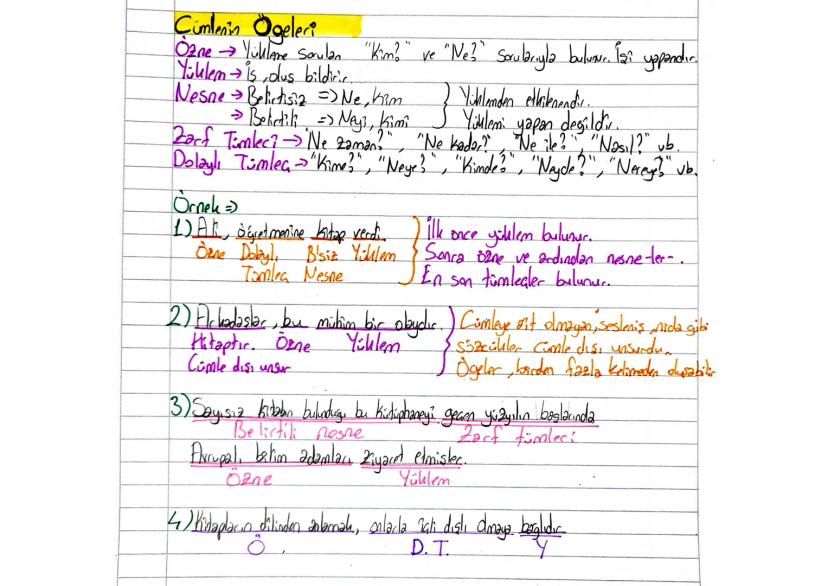 Cümlenin Ögeleri
Özne → Yükleme sorulan "Kim?" ve "Ne?" sorularıyla bulunur. İşi yapandır.
Yüklem → İş, oluş bildirir.
Nesne → Belirtisiz => Ne, Kim } Yüklemden etkilenendir.
→ Belirtili => Neyi, Kimi } Yüklemi yapan değildir.
Zarf Tümleci → "Ne zaman?", "Ne kadar?", "Ne ile?", "Nasıl?" vb.
Dolaylı Tümleç → "Kime?", "Neye?", "Kimde?", "Neyde?", "Nereye?" vb.
Örnek =>
1) Ali, öğretmenine kitap verdi. } İlk önce yüklem bulunur.
Özne Dolaylı B'siz Yüklem } Sonra özne ve ardından nesne-ler-.
Tümleç Nesne } En son tümleçler bulunur.
2) Arkadaşlar, bu mühim bir olaydır. } Cümleye ait olmayan, sesleniş, nida gibi
Hitaptır. Özne Yüklem } sözcükler cümle dışı unsurdur.
Cümle dışı unsur } Ögeler, birden fazla kelimeden oluşabilir
3) Sayısız kitabın bulunduğu bu kütüphaneyi geçen yüzyılın başlarında
Belirtili nesne Zarf tümleci
Avrupalı bilim adamları ziyaret etmişler.
Özne Yüklem
4) Kitapların dilinden anlamak, onlarla içli dışlı olmaya bağlıdır.
Ö D.T. Y